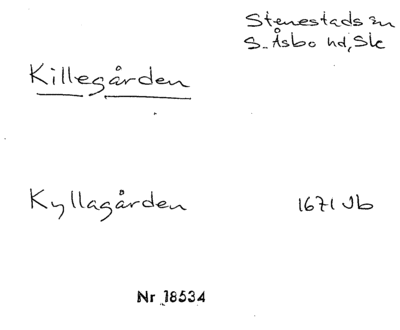 Stenestads sn
S. Åsbo hd, Sk
Killegården
Kyllagården 1671 Jb
Nr 18534